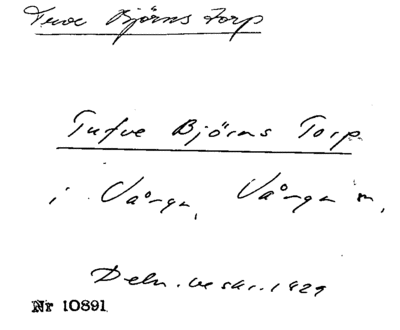 Tuve Björns Torp
Tufve Björns Torp
i Vånga, Vånga sn,
Deln.beskr. 1829
Nr 10891